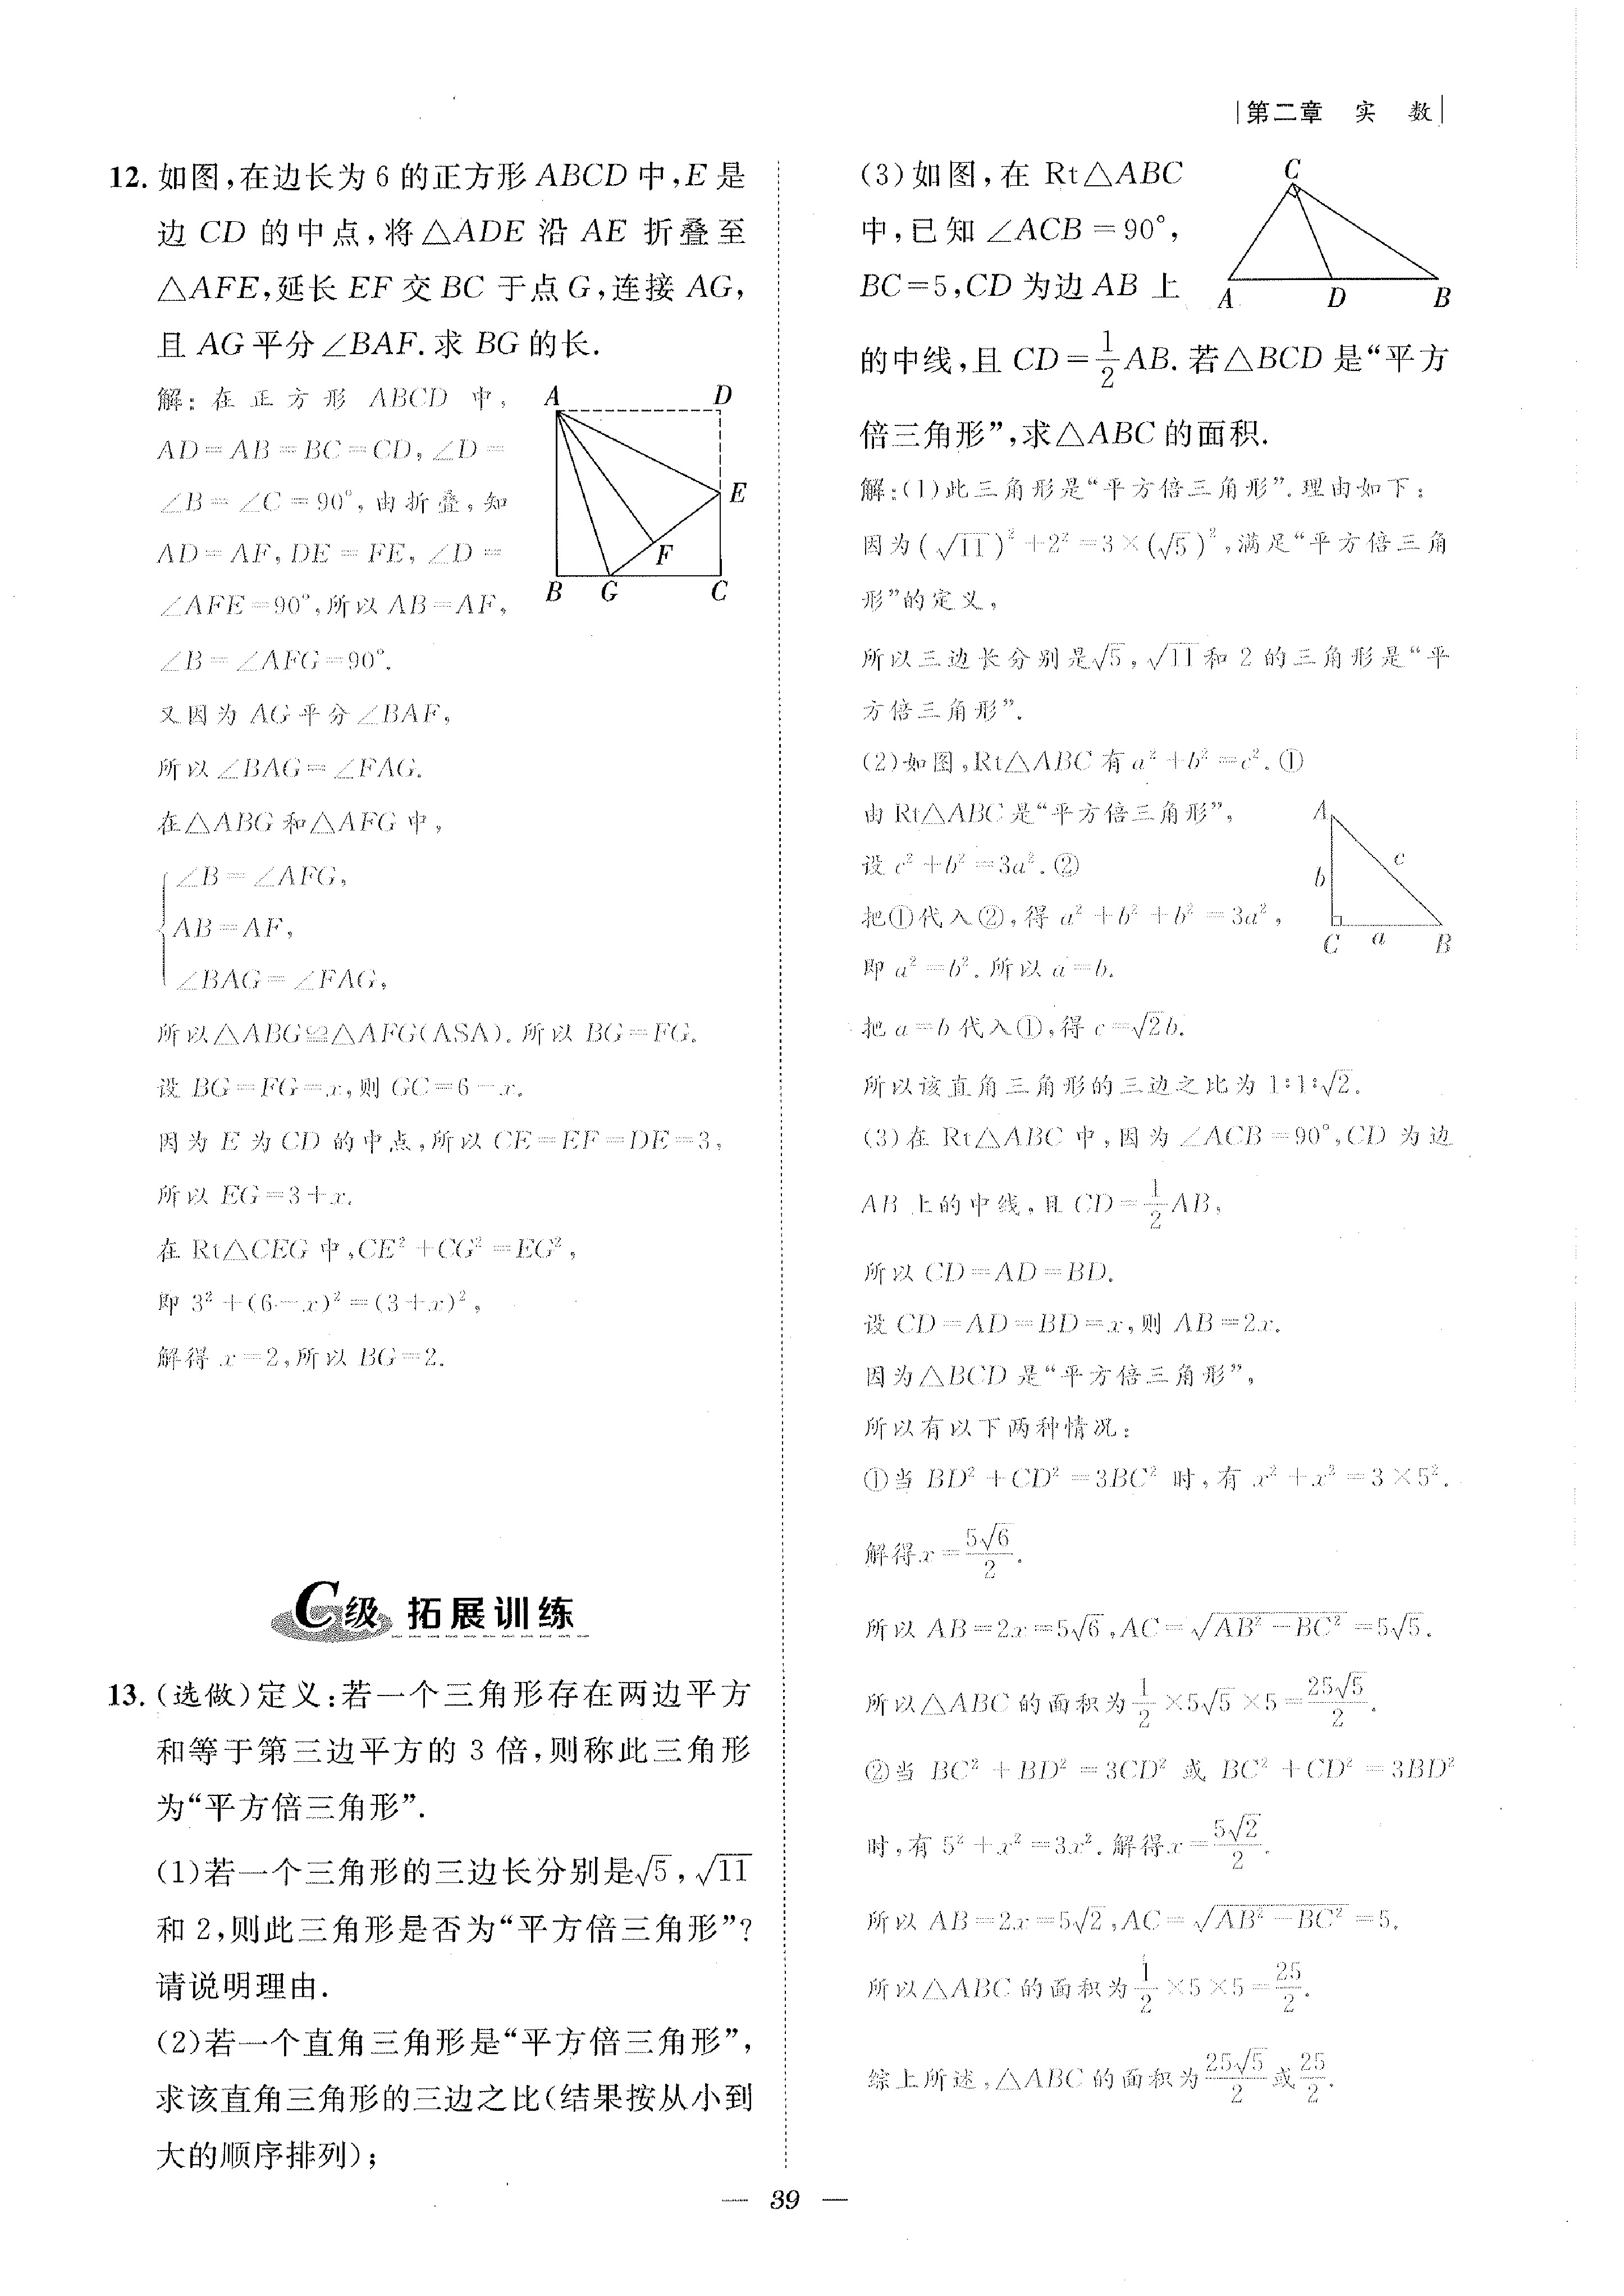 第二章 实 数
12. 如图,在边长为6的正方形ABCD中,E是
边CD的中点,将△ADE沿AE折叠至
△AFE,延长EF交BC于点G,连接AG,
且AG平分∠BAF.求BG的长.
解:在正方形ABCD中,
AD=AB=BC=CD,∠D=
∠B=∠C=90°,由折叠,知
AD=AF,DE=FE,∠D=
∠AFE=90°,所以AB=AF,
∠B=∠AFG=90°.
又因为AG平分∠BAF,
所以∠BAG=∠FAG.
在△ABG和△AFG中,
∠B=∠AFG,
AB=AF,
∠BAG=∠FAG,
所以△ABG≌△AFG(ASA).所以BG=FG.
设BG=FG=x,则GC=6-x.
因为E为CD的中点,所以CE=EF=DE=3,
所以EG=3+x.
在Rt△CEG中,CE²+CG²=EG²,
即3²+(6-x)²=(3+x)²,
解得x=2,所以BG=2.
A D
E
F
B G C
C级 拓展训练
13. (选做)定义:若一个三角形存在两边平方
和等于第三边平方的3倍,则称此三角形
为“平方倍三角形”.
(1)若一个三角形的三边长分别是√5,√11
和2,则此三角形是否为“平方倍三角形”?
请说明理由.
(2)若一个直角三角形是“平方倍三角形”,
求该直角三角形的三边之比(结果按从小到
大的顺序排列);
(3)如图,在Rt△ABC
中,已知∠ACB=90°,
BC=5,CD为边AB上
的中线,且CD=1/2AB.若△BCD是“平方
倍三角形”,求△ABC的面积.
C
A D B
解:(1)此三角形是“平方倍三角形”.理由如下:
因为(√11)²+2²=3×(√5)²,满足“平方倍三角
形”的定义,
所以三边长分别是√5,√11和2的三角形是“平
方倍三角形”.
(2)如图,Rt△ABC有a²+b²=c².①
由Rt△ABC是“平方倍三角形”,
设c²+b²=3a².②
把①代入②,得a²+b²+b²=3a²,
即a²=b².所以a=b.
把a=b代入①,得c=√2b.
所以该直角三角形的三边之比为1:1:√2.
A
b c
C a B
(3)在Rt△ABC中,因为∠ACB=90°,CD为边
AB上的中线,且CD=1/2AB,
所以CD=AD=BD.
设CD=AD=BD=x,则AB=2x.
因为△BCD是“平方倍三角形”,
所以有以下两种情况:
①当BD²+CD²=3BC²时,有x²+x²=3×5².
解得x=5√6/2.
所以AB=2x=5√6,AC=√(AB²-BC²)=5√5.
所以△ABC的面积为1/2×5√5×5=25√5/2.
②当BC²+BD²=3CD²或BC²+CD²=3BD²
时,有5²+x²=3x².解得x=5√2/2.
所以AB=2x=5√2,AC=√(AB²-BC²)=5.
所以△ABC的面积为1/2×5×5=25/2.
综上所述,△ABC的面积为25√5/2或25/2.
— 39 —